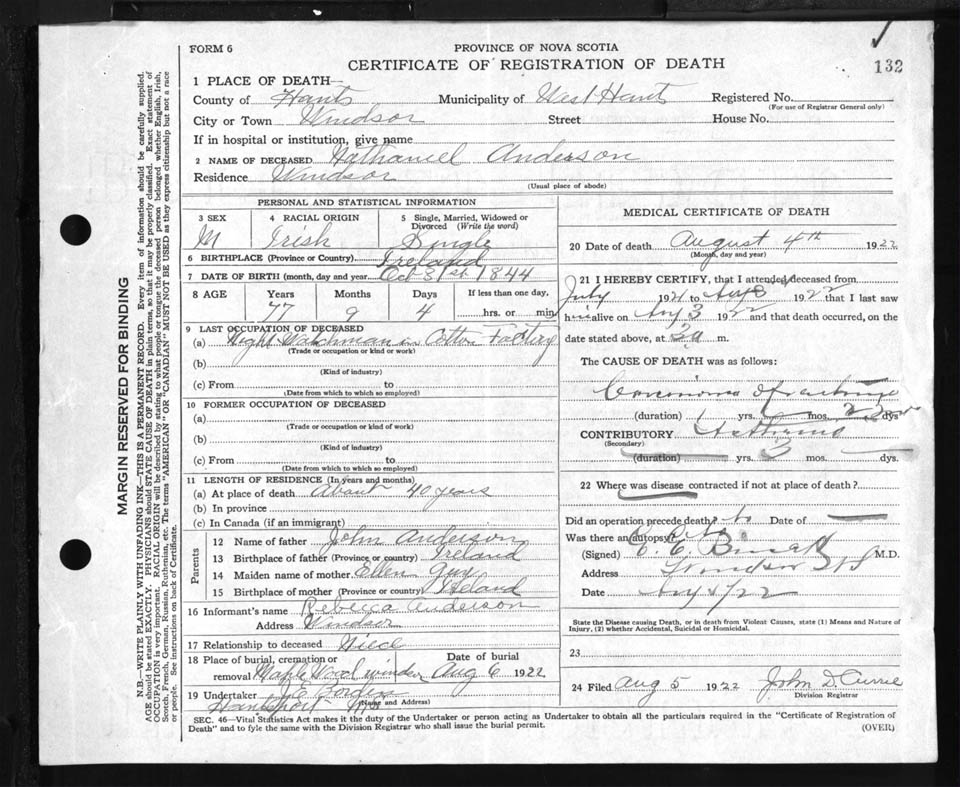 FORM 6
PROVINCE OF NOVA SCOTIA
CERTIFICATE OF REGISTRATION OF DEATH
132
1 PLACE OF DEATH—
County of Hants Municipality of West Hants Registered No.
(For use of Registrar General only)
City or Town Windsor Street House No.
If in hospital or institution, give name
2 NAME OF DECEASED Nathaniel Anderson
Residence Windsor
(Usual place of abode)
PERSONAL AND STATISTICAL INFORMATION
3 SEX 4 RACIAL ORIGIN 5 Single, Married, Widowed or Divorced (Write the word)
M Irish Single
6 BIRTHPLACE (Province or Country) Ireland
7 DATE OF BIRTH (month, day and year) Oct 31st 1844
8 AGE Years Months Days If less than one day,
77 9 4 hrs. or min
9 LAST OCCUPATION OF DECEASED
(a) Night Watchman in Cotton Factory
(Trade or occupation or kind or work)
(b)
(Kind of industry)
(c) From to
(Date from which to which so employed)
10 FORMER OCCUPATION OF DECEASED
(a)
(Trade or occupation or kind of work)
(b)
(Kind of industry)
(c) From to
(Date from which to which so employed)
11 LENGTH OF RESIDENCE (In years and months)
(a) At place of death About 40 years
(b) In province
(c) In Canada (if an immigrant)
Parents
12 Name of father John Anderson
13 Birthplace of father (Province or country) Ireland
14 Maiden name of mother Ellen
15 Birthplace of mother (Province or country) Ireland
16 Informant's name Rebecca Anderson
Address Windsor
17 Relationship to deceased Niece
18 Place of burial, cremation or removal Maple Wood Windsor Date of burial Aug 6 1922
19 Undertaker
Hantsport NS (Name and Address)
MEDICAL CERTIFICATE OF DEATH
20 Date of death August 4th 1922
(Month, day and year)
21 I HEREBY CERTIFY, that I attended deceased from
July 1921 to Aug 3 1922 that I last saw
him alive on Aug 3 1922 and that death occurred, on the
date stated above, at m.
The CAUSE OF DEATH was as follows:
Carcinoma of
(duration) yrs. mos. dys
CONTRIBUTORY Asthma
(Secondary)
(duration) yrs. 3 mos. dys.
22 Where was disease contracted if not at place of death?
Did an operation precede death? No Date of
Was there an autopsy?
(Signed) M.D.
Address Windsor NS
Date Aug 4/22
State the Disease causing Death, or in death from Violent Causes, state (1) Means and Nature of
Injury, (2) whether Accidental, Suicidal or Homicidal.
23
24 Filed Aug 5 1922 John D. Currie
Division Registrar
SEC. 46—Vital Statistics Act makes it the duty of the Undertaker or person acting as Undertaker to obtain all the particulars required in the "Certificate of Registration of
Death" and to fyle the same with the Division Registrar who shall issue the burial permit.
(OVER)
MARGIN RESERVED FOR BINDING
N.B.—WRITE PLAINLY WITH UNFADING INK—THIS IS A PERMANENT RECORD. Every item of information should be carefully supplied.
AGE should be stated EXACTLY. PHYSICIANS should STATE CAUSE OF DEATH in plain terms, so that it may be properly classified. Exact statement of
OCCUPATION is very important. RACIAL ORIGIN will be described by stating to what people or tongue the deceased person belonged whether English, Irish,
Scotch, French, German, Russian, Ruthenian, etc. The terms "AMERICAN" or "CANADIAN" MUST NOT BE USED as they express citizenship but not a race
or people. See instructions on back of Certificate.